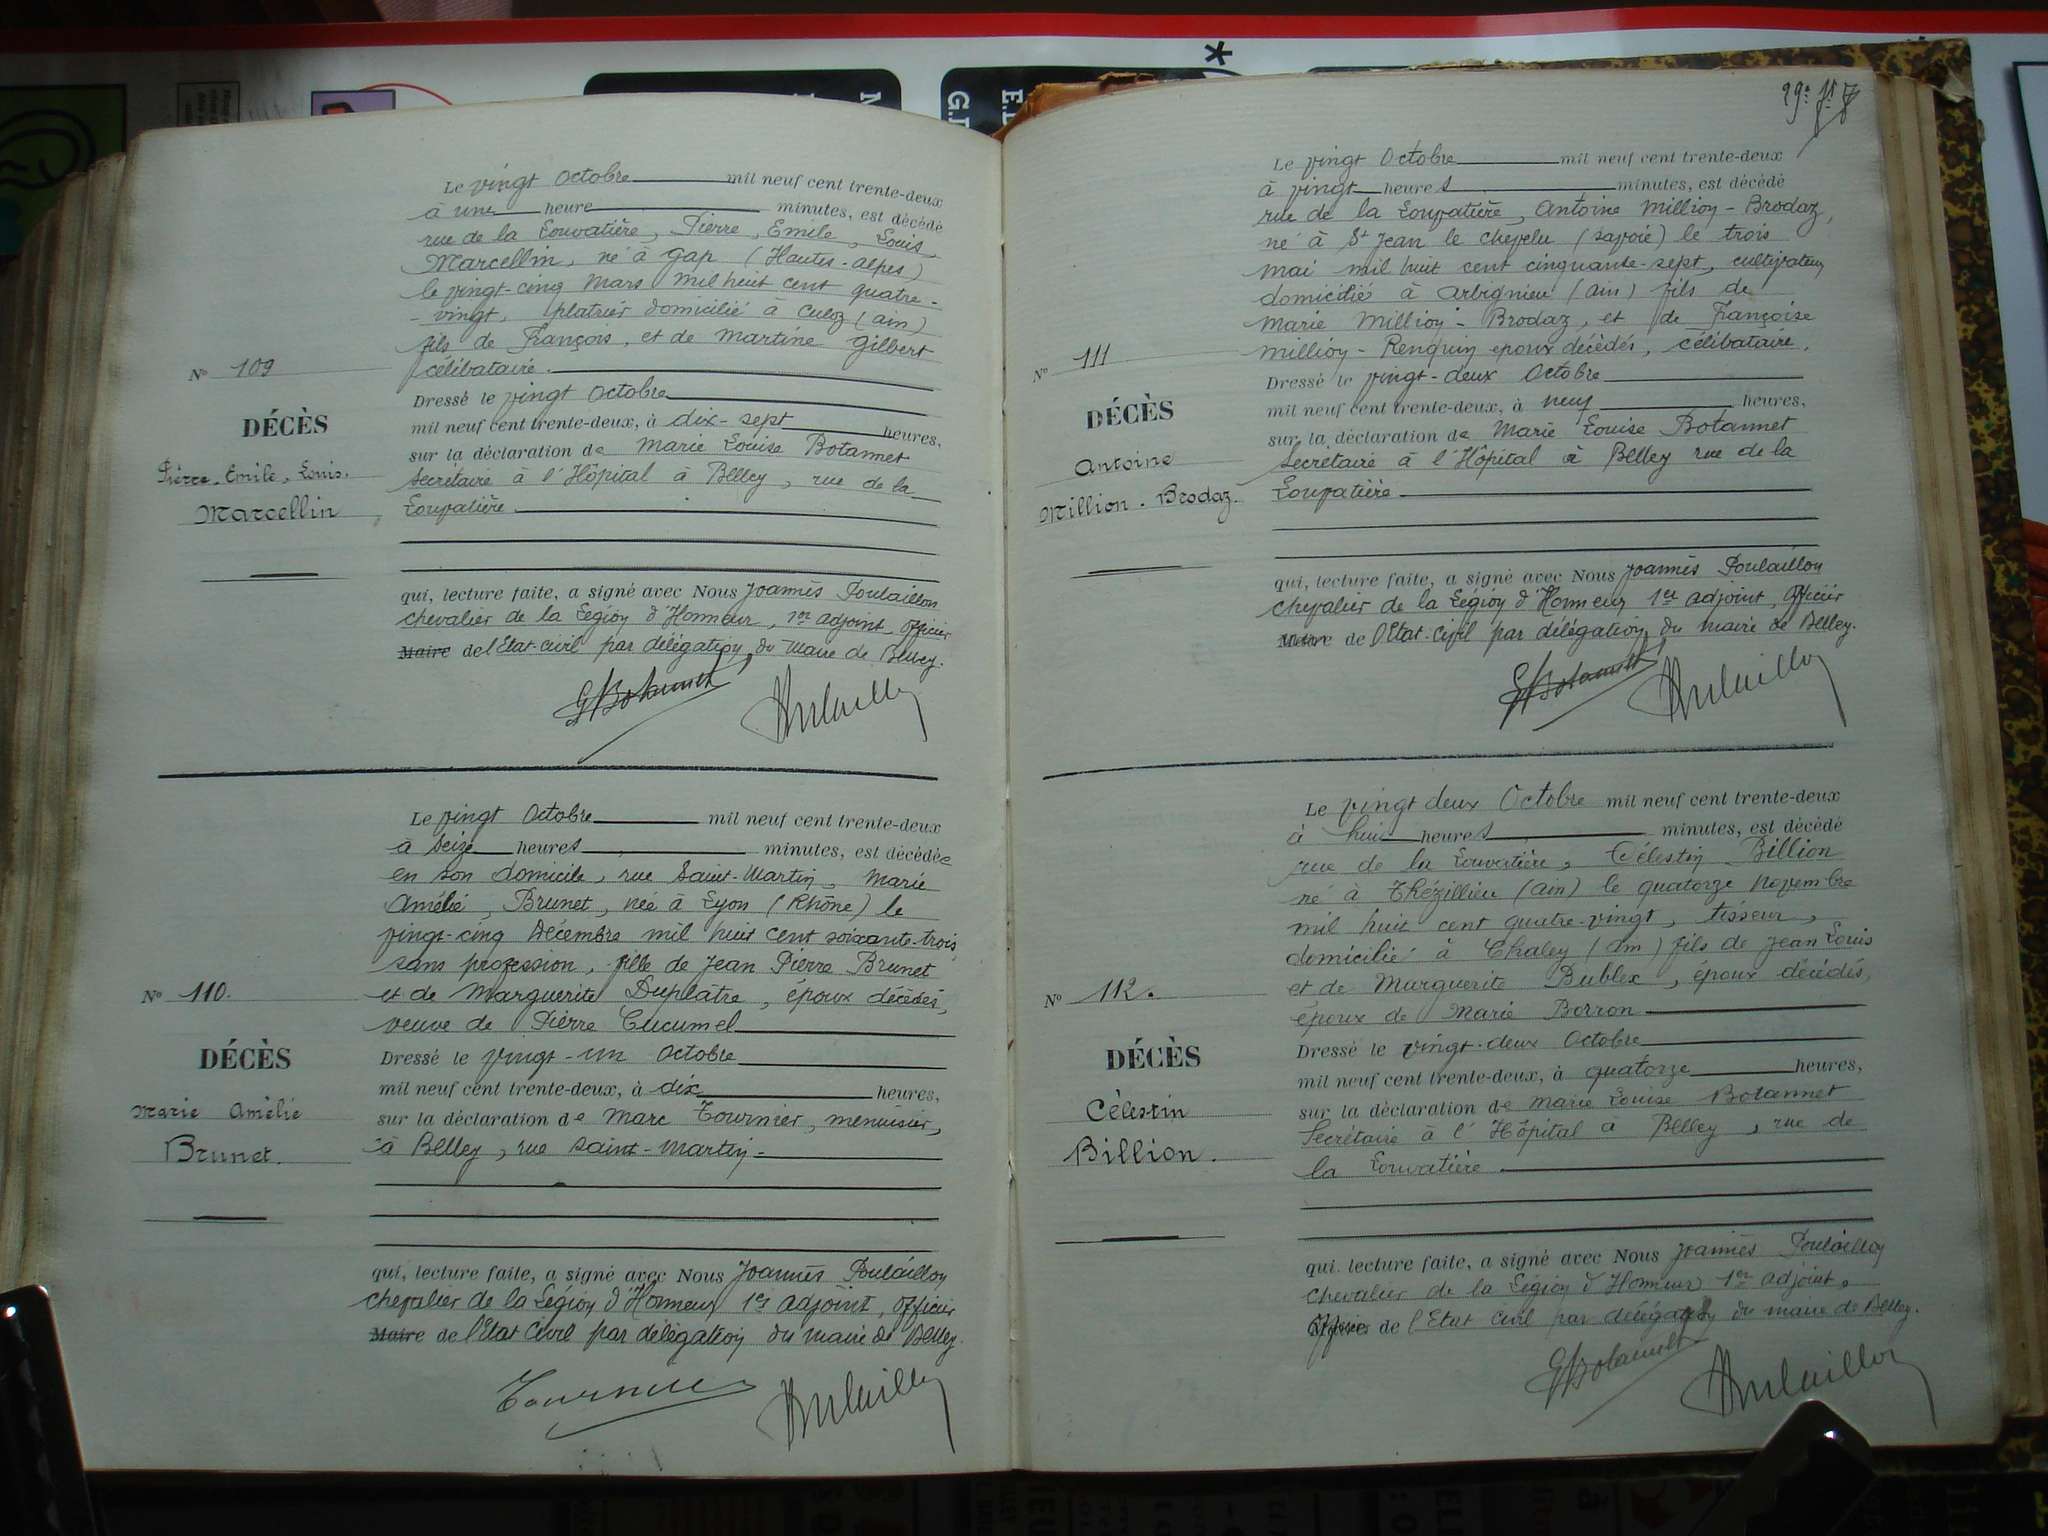 Le vingt Octobre mil neuf cent trente-deux
à une heure minutes, est décédé
rue de la Louvatière, Pierre, Emile, Louis,
Marcellin, né à Gap (Hautes-alpes)
le vingt-cinq Mars mil huit cent quatre-
-vingt, plâtrier domicilié à Culoz (ain)
fils de François, et de Martine Gilbert
célibataire.
Dressé le vingt Octobre
mil neuf cent trente-deux, à dix-sept heures,
sur la déclaration de Marie Louise Botannet
Secrétaire à l'Hôpital à Belley, rue de la
Louvatière
qui, lecture faite, a signé avec Nous Joannès Poulaillon
chevalier de la Légion d'Honneur, 1er adjoint, officier
Maire de l'Etat-civil par délégation du Maire de Belley.
N° 109
DÉCÈS
Pierre, Emile, Louis.
Marcellin
Le vingt Octobre mil neuf cent trente-deux
à seize heures minutes, est décédée
en son domicile, rue Saint-Martin, Marie
Amélie, Brunet, née à Lyon (Rhône) le
vingt-cinq Décembre mil huit cent soixante-trois
sans profession, fille de Jean Pierre Brunet
et de Marguerite Duplâtre, époux décédés,
veuve de Pierre Cucumel
Dressé le vingt-un Octobre
mil neuf cent trente-deux, à dix heures,
sur la déclaration de Marc Tournier, menuisier,
à Belley, rue Saint-Martin
qui, lecture faite, a signé avec Nous Joannès Poulaillon
chevalier de la Légion d'Honneur 1er adjoint, officier
Maire de l'Etat Civil par délégation du maire de Belley.
N° 110.
DÉCÈS
Marie Amélie
Brunet.
Le vingt Octobre mil neuf cent trente-deux
à vingt heures minutes, est décédé
rue de la Louvatière, Antoine Million-Brodaz,
né à St Jean le chevelu (savoie) le trois
mai mil huit cent cinquante-sept, cultivateur
domicilié à arbignieu (ain) fils de
Marie Million-Brodaz, et de Françoise
Million-Renquin epoux décédés, célibataire.
Dressé le vingt-deux Octobre
mil neuf cent trente-deux, à neuf heures,
sur la déclaration de Marie Louise Botannet
Secrétaire à l'Hôpital à Belley rue de la
Louvatière
qui, lecture faite, a signé avec Nous Joannès Poulaillon
chevalier de la Légion d'Honneur 1er adjoint, officier
Maire de l'Etat-civil par délégation du maire de Belley.
N° 111
DÉCÈS
Antoine
Million-Brodaz.
Le vingt deux Octobre mil neuf cent trente-deux
à huit heures minutes, est décédé
rue de la Louvatière, Célestin Billion
né à Thézillieu (ain) le quatorze novembre
mil huit cent quatre-vingt, tisseur,
domicilié à Chaley (ain) fils de Jean Louis
et de Marguerite Bublex, époux décédés,
époux de Marie Borron
Dressé le vingt-deux Octobre
mil neuf cent trente-deux, à quatorze heures,
sur la déclaration de Marie Louise Botannet
Secrétaire à l'Hôpital à Belley, rue de
la Louvatière
qui, lecture faite, a signé avec Nous Joannès Poulaillon
chevalier de la Légion d'Honneur 1er adjoint,
de l'Etat civil par délégation du maire de Belley.
N° 112.
DÉCÈS
Célestin
Billion.